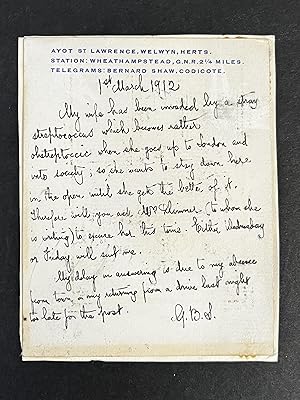 AYOT ST LAWRENCE, WELWYN, HERTS.
STATION: WHEATHAMPSTEAD, G.N.R. 2¼ MILES.
TELEGRAMS: BERNARD SHAW, CODICOTE.
1st March 1912
My wife has been invaded by a stray
streptococcus which becomes rather
obstreptoccic when she goes up to London and
into society; so she wants to stay down here
in the open until she gets the better of it.
Therefore will you ask Mrs (to whom she
is writing) to excuse her this time. Either Wednesday
or Friday will suit me.
My delay in answering is due to my absence
from town, & my returning from a drive last night
too late for the post.
G.B.S.